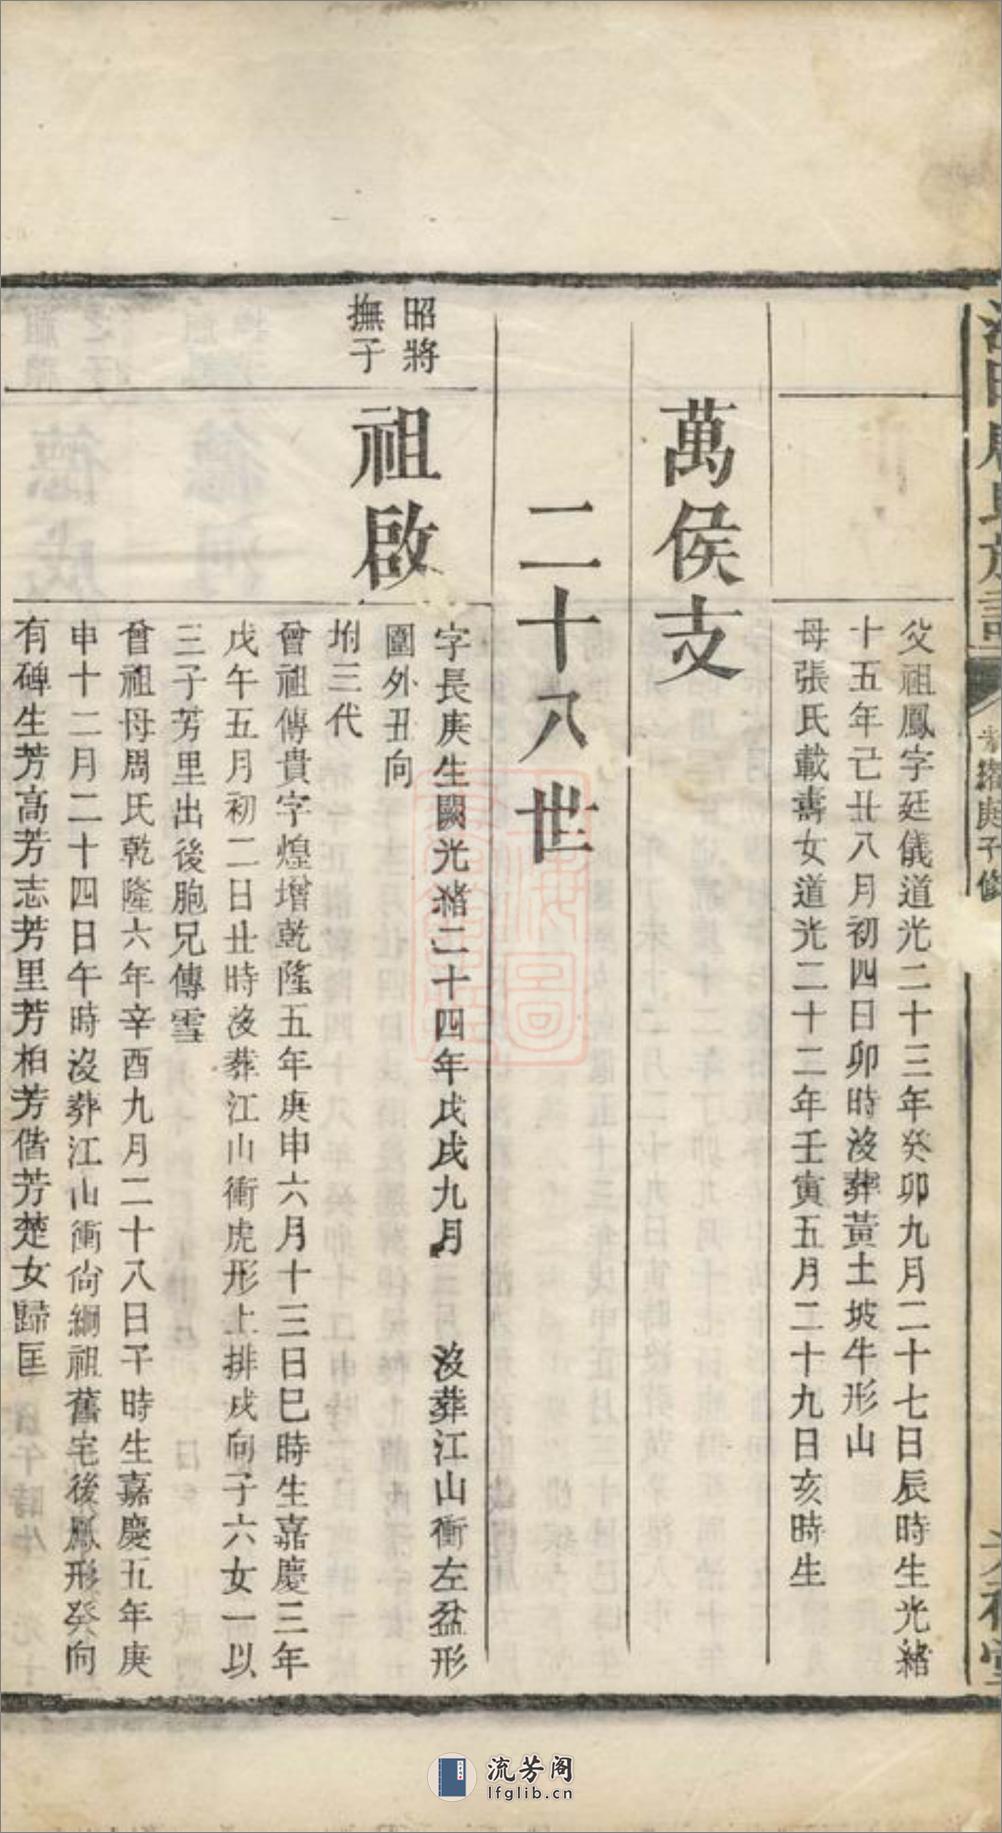 父祖鳳字廷儀道光二十三年癸卯九月二十七日辰時生光緒
十五年己丑八月初四日卯時沒葬黃土坡牛形山
母張氏載壽女道光二十二年壬寅五月二十九日亥時生
萬侯支
二十八世
昭將
撫子
祖啟
字長庚生闕光緒二十四年戊戌九月 沒葬江山衝左盆形
圍外丑向
坿三代
曾祖傳貴字煌增乾隆五年庚申六月十三日巳時生嘉慶三年
戊午五月初二日丑時沒葬江山衝虎形上排戌向子六女一以
三子芳里出後胞兄傳雪
曾祖母周氏乾隆六年辛酉九月二十八日子時生嘉慶五年庚
申十二月二十四日午時沒葬江山衝尙綱祖舊宅後鳳形癸向
有碑生芳高芳志芳里芳柏芳偕芳楚女歸匡
庚子修
流芳阁
lfglib.cn